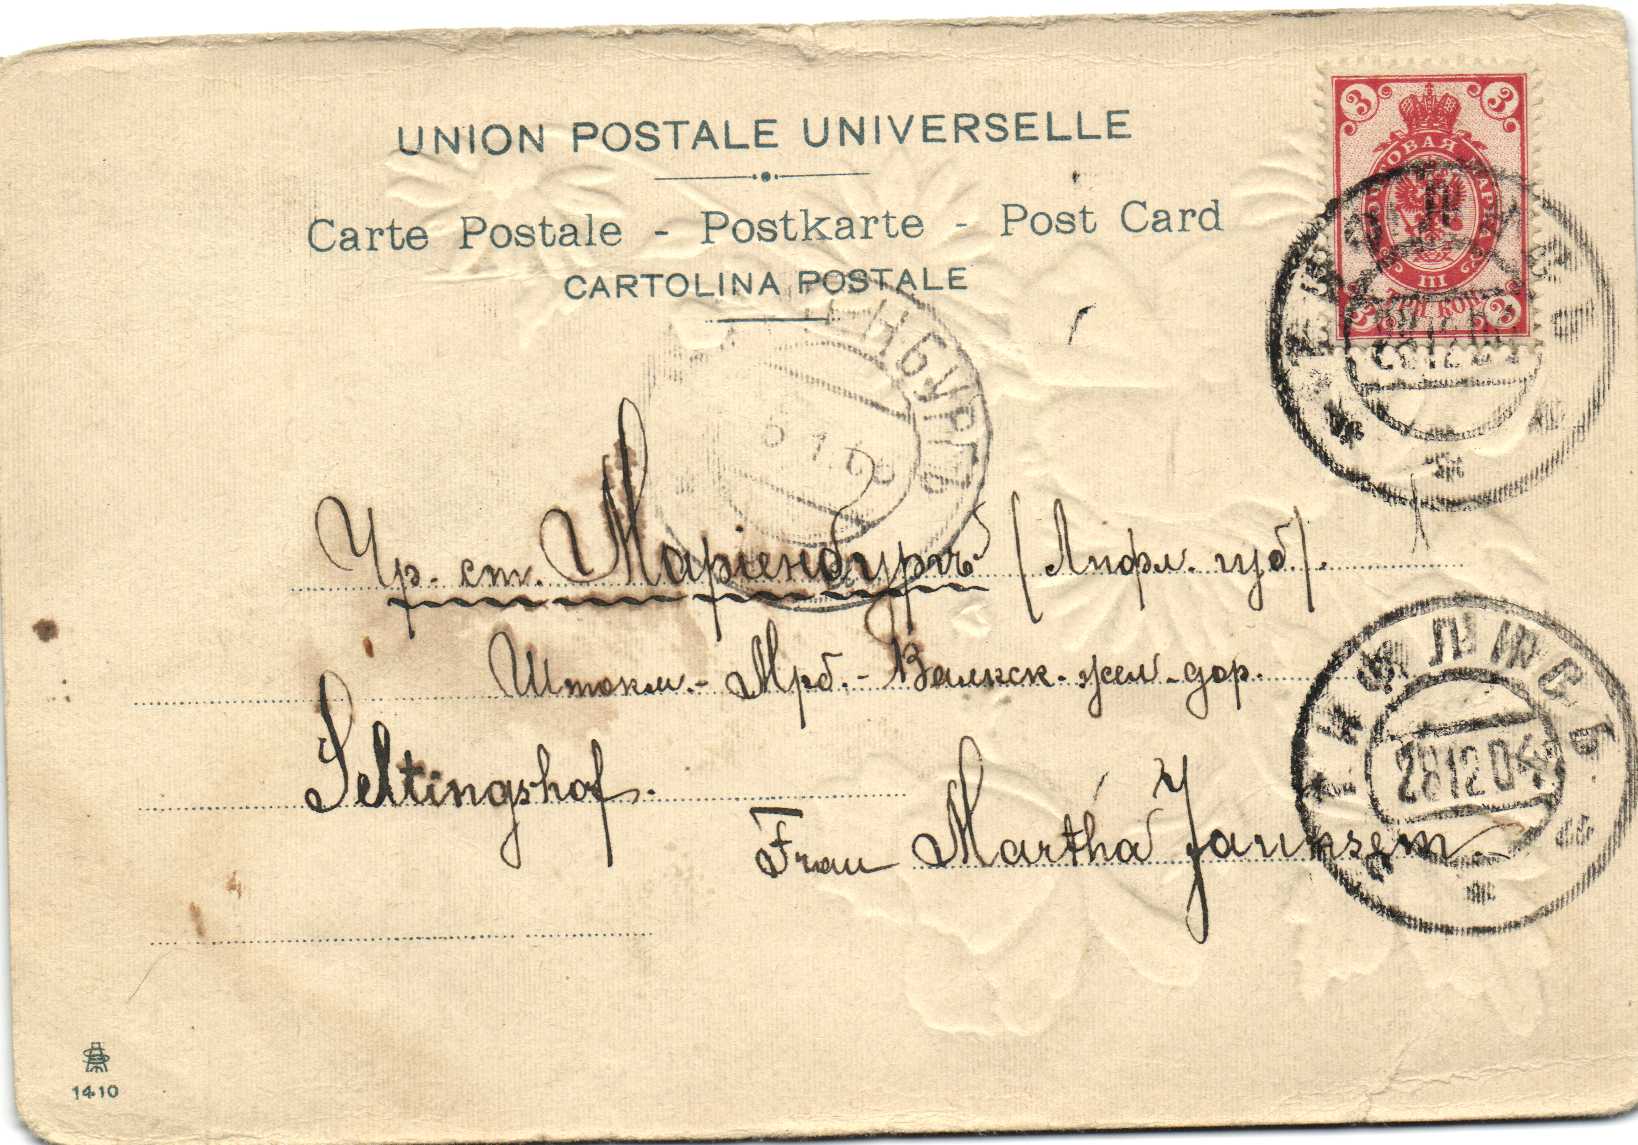 UNION POSTALE UNIVERSELLE
Carte Postale - Postkarte - Post Card
CARTOLINA POSTALE
3 3
ПОЧТОВАЯ МАРКА
III
ТРИ КОП.
3 3
ТИФЛИСЪ
28 12 04
ЕНБУРГЪ
5 1 05
Чр. ст. Маріенбургъ (Лифл. губ).
Штокм. - Мрб. - Валкск. жел. дор.
Seltingshof.
Frau Martha
ТИФЛИСЪ
28 12 04
14•10